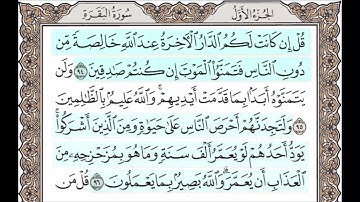 الجزء الأول سورة البقرة
قُلْ إِن كَانَتْ لَكُمُ الدَّارُ الْآخِرَةُ عِندَ اللَّهِ خَالِصَةً مِّن
دُونِ النَّاسِ فَتَمَنَّوُا الْمَوْتَ إِن كُنتُمْ صَادِقِينَ ٩٤ وَلَن
يَتَمَنَّوْهُ أَبَدًا بِمَا قَدَّمَتْ أَيْدِيهِمْ وَاللَّهُ عَلِيمٌ بِالظَّالِمِينَ
٩٥ وَلَتَجِدَنَّهُمْ أَحْرَصَ النَّاسِ عَلَىٰ حَيَوٰةٍ وَمِنَ الَّذِينَ أَشْرَكُوا
يَوَدُّ أَحَدُهُمْ لَوْ يُعَمَّرُ أَلْفَ سَنَةٍ وَمَا هُوَ بِمُزَحْزِحِهِ مِنَ
الْعَذَابِ أَن يُعَمَّرَ وَاللَّهُ بَصِيرٌ بِمَا يَعْمَلُونَ ٩٦ قُلْ مَن